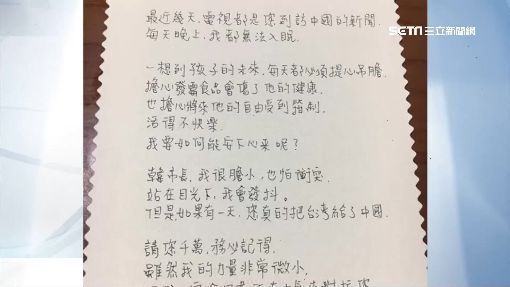 SETN 三立新聞網
最近幾天,電視都是您到訪中國的新聞.
每天晚上,我都無法入眠.
一想到孩子的未來,每天都必須提心吊膽.
擔心發霉食品會傷了他的健康.
也擔心將來他的自由受到箝制.
活得不快樂.
我要如何能安下心來呢?
韓市長,我很膽小,也怕衝突.
站在日光下,我會發抖。
但是如果有一天,您真的把台灣給了中國.
請您千萬,務必記得.
雖然我的力量非常微小.